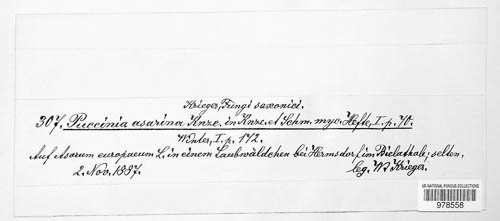 Krieger, Fungi saxonici.
307. Puccinia asarina Knze. in Knze. et Schm. myc. Hefte, I. p. 70.
Winter, I. p. 192.
Auf Asarum europaeum L. in einem Laubwäldchen bei Hermsdorf im Bielathale; selten,
2. Nov. 1887. leg. W. Krieger.
US NATIONAL FUNGUS COLLECTIONS
978558